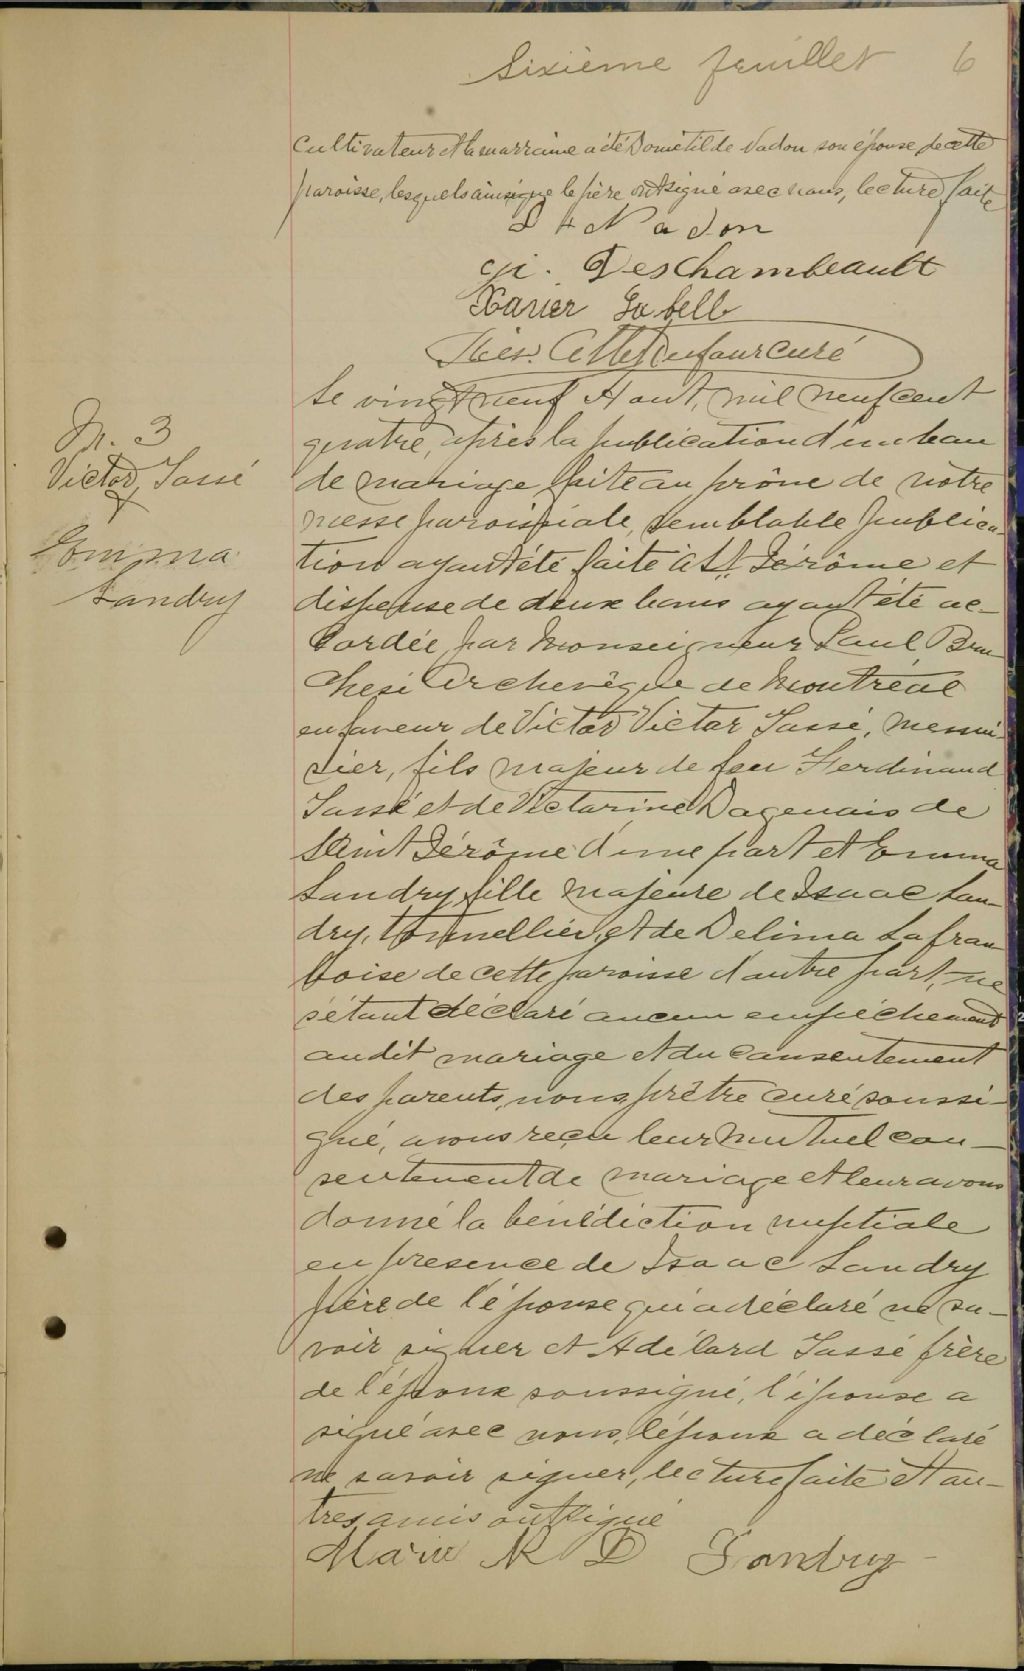 Sixième feuillet 6
Cultivateur et la marraine a été Dométilde Nadon son épouse de cette
paroisse, lesquels ainsi que le père ont signé avec nous, lecture faite
D + Nadon
Deschambeault
Xavier Labell
curé
Le vingt neuf Aout, mil neuf cent
quatre, après la publication d'un ban
de mariage faite au prône de notre
messe paroissiale, semblable publica-
tion ayant été faite à St Jérôme et
dispense de deux bans ayant été ac-
cordée par Monseigneur Paul Bru-
chesi Archevêque de Montréal
en faveur de Victor Victor Jassé, menui-
sier, fils majeur de feu Ferdinand
Jassé et de Victorine Dagenais de
Saint Jérôme d'une part et Emma
Landry fille majeure de Isaac Lan-
dry, tonnellier, et de Delima Lafram
boise de cette paroisse d'autre part, ne
s'étant déclaré aucun empêchement
au dit mariage et du consentement
des parents, nous prêtre curé soussi-
gné, avons reçu leur mutuel con-
sentement de mariage et leur avons
donné la bénédiction nuptiale
en présence de Isaac Landry
père de l'épouse qui a déclaré ne sa-
voir signer et Adélard Jassé frère
de l'époux soussigné, l'épouse a
signé avec nous, l'époux a déclaré
ne savoir signer, lecture faite et au-
tres amis ont signé
Marie R D Landry
M. 3
Victor Jassé
&
Emma
Landry